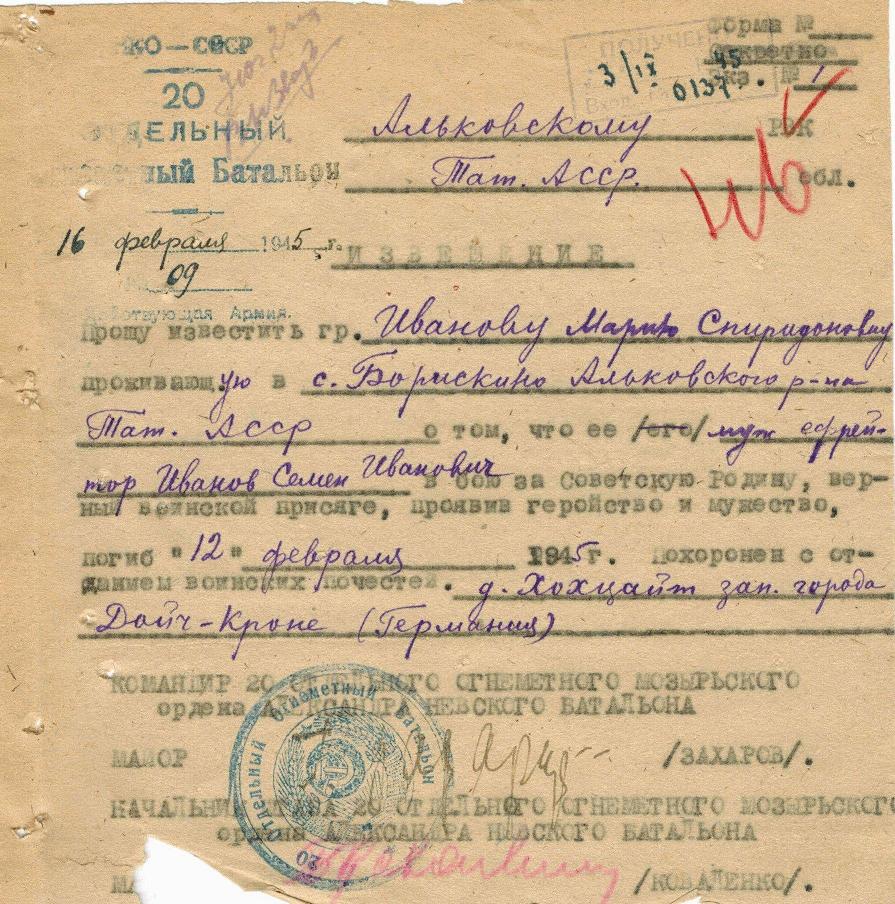 НКО — СССР
20
ОТДЕЛЬНЫЙ
Огнеметный Батальон
16 февраля 1945 г.
№ 09
Действующая Армия.
Форма №
Секретно
Экз. № 1
ПОЛУЧЕНО
3/IX 45
0137
Вход.
Альковскому РВК
Тат. АССР. обл.
ИЗВЕЩЕНИЕ
Прошу известить гр. Иванову Марию Спиридоновну
проживающую в с. Борискино Альковского р-на
Тат. АССР о том, что ее /его/ муж ефрей-
тор Иванов Семен Иванович в бою за Советскую Родину, вер-
ный воинской присяге, проявив геройство и мужество,
погиб "12" февраля 1945г. Похоронен с от-
данием воинских почестей. д. Хохцайт зап. города
Дойч-Кроне (Германия)
КОМАНДИР 20 ОТДЕЛЬНОГО ОГНЕМЕТНОГО МОЗЫРЬСКОГО
ордена АЛЕКСАНДРА НЕВСКОГО БАТАЛЬОНА
МАЙОР /ЗАХАРОВ/.
НАЧАЛЬНИК ШТАБА 20 ОТДЕЛЬНОГО ОГНЕМЕТНОГО МОЗЫРЬСКОГО
ордена АЛЕКСАНДРА НЕВСКОГО БАТАЛЬОНА
/КОВАЛЕНКО/.
20 Отдельный Огнеметный Батальон